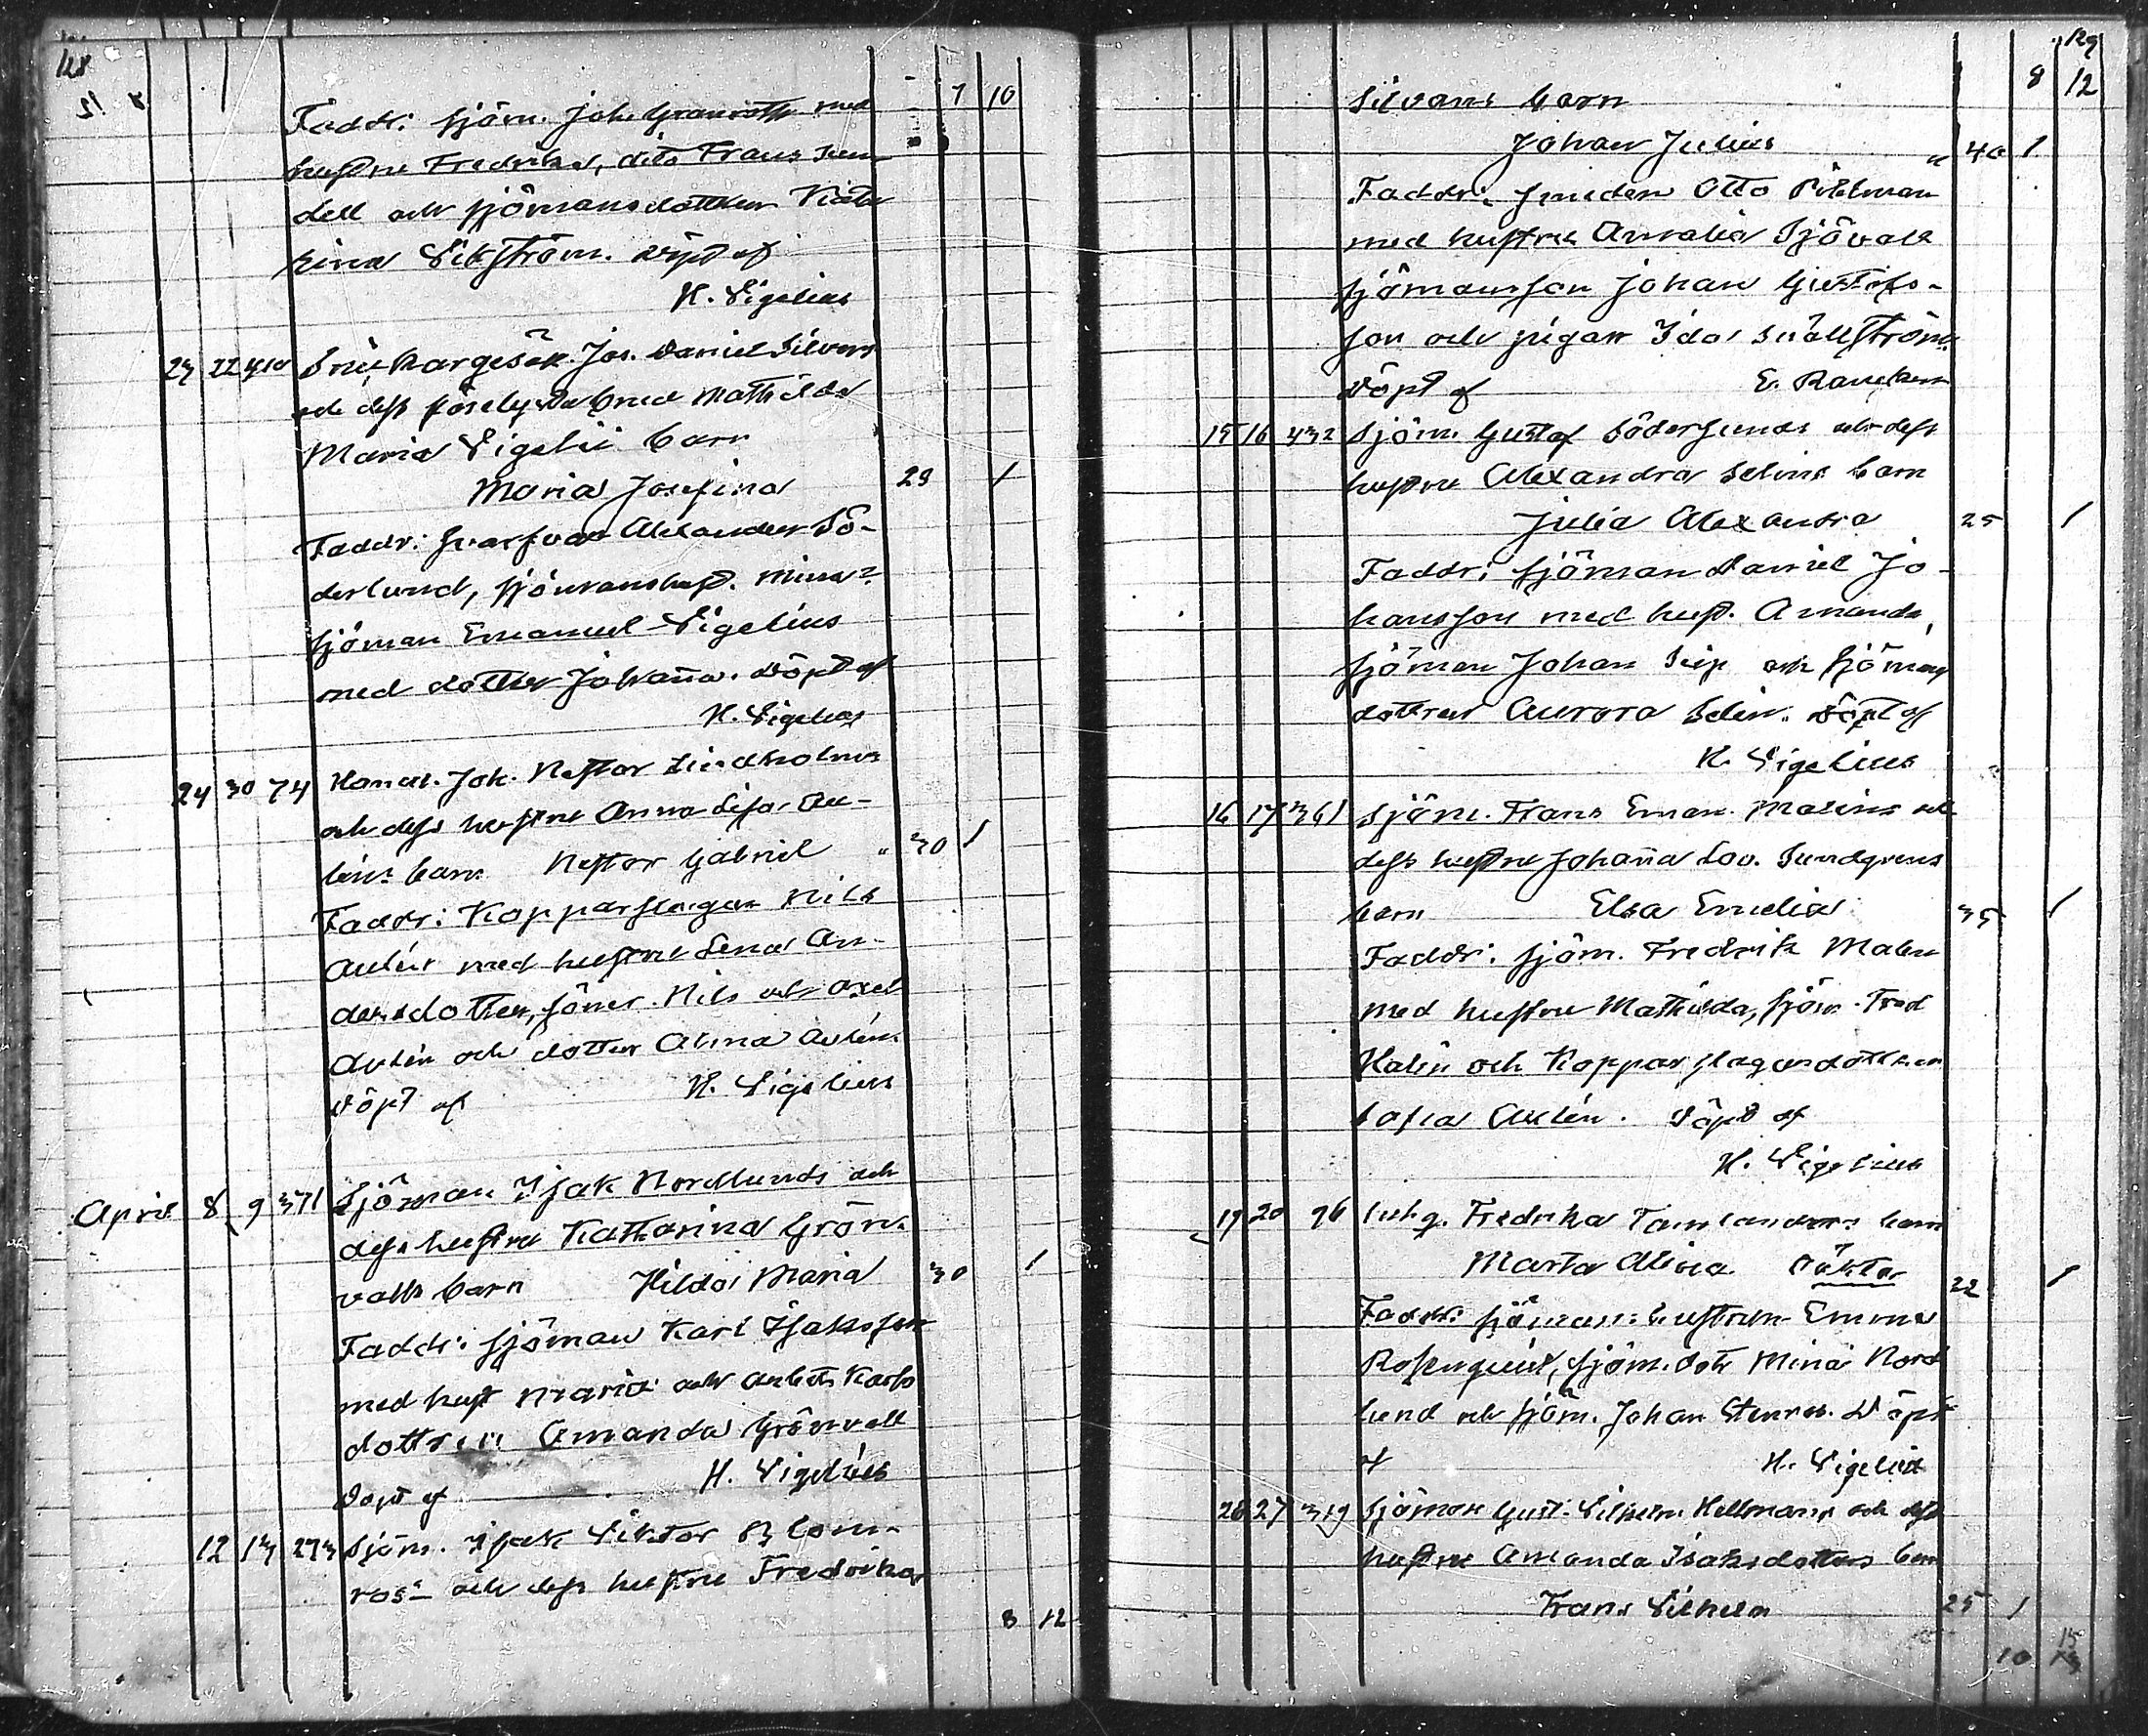 128
7 10
Faddr: sjöm. Joh. Granroth med
hustru Fredrika, dito Frans Sun-
dell och sjömansdottren Kata
rina Vikström. Döpt af
H. Vigelius
23 22 410 Jos. Daniel Silvens
och dess förelysta brud Mathilda
Maria Vigelii barn
Maria Josefina 29 1
Faddr: Alexander Sö-
derlund, sjömanshust. Mina
sjöman Emanuel Vigelius
med dotter Johanna. Döpt af
H. Vigelius
24 30 74 Joh. Nestor Lindholms
och dess hustru Anna Lisa Au-
léns barn Nestor Gabriel " 30 1
Faddr: Kopparslagar Nils
Aulén med hustru Lena An-
dersdotter, söner Nils och Axel
Aulén och dotter Alina Aulén.
Döpt af H. Vigelius
April 8 9 371 Sjöman Isak Nordlunds och
dess hustru Katharina Grön-
valls barn Hilda Maria 30 1
Faddr: sjöman Karl Isaksson
med hust Maria och arbets Karls
dottren Amanda Grönvall
Döpt af H. Vigelius
12 13 273 Sjöm. Isak Viktor Blom-
ros' och dess hustru Fredrika
8 12
129
8 12
Silvans barn
Johan Julius " 40 1
Faddr: smeden Otto
med hustru Amalia Sjövall
sjömansson Johan Gustafs-
son och pigan Ida Snällström.
Döpt af E. Rancken
15 16 432 Sjöm. Gustaf Söderlunds och dess
hustru Alexandra Selins barn
Julia Alexandra 25 1
Faddr: sjöman Daniel Jo-
hansson med hust. Amanda,
sjöman Johan och sjömans
dottren Aurora Selin. Döpt af
H. Vigelius
16 17 361 Sjöm. Frans Eman. Malins och
dess hustru Johanna Lov. Sundqvens
barn Elsa Emelia 35 1
Faddr: sjöm. Fredrik Malin
med hustru Mathilda, sjöm. Fred
Malin och Kopparslagaredottren
Sofia Aulén. Döpt af
H. Vigelius
19 20 76 Fredrika Tamlanders barn
Marta Alina Oäkta 22 1
Faddr: sjömans hustrun Emma
Rosenqvist, sjöm. dotr Mina Nord
lund och sjöm. Johan Stenros. Döpt
af H. Vigelius
26 27 319 Sjöman Gust. Vilhelm Hellmans och dess
hustru Amanda Isaksdotters barn
Frans Vilhelm 25 1
10 15